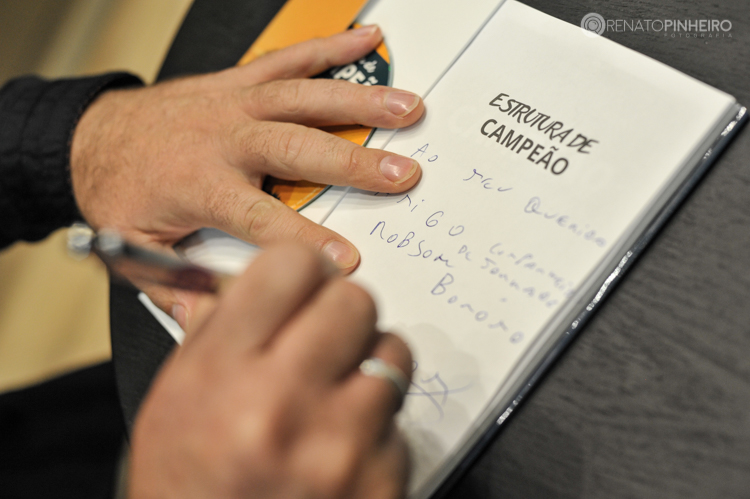 RENATOPINHEIRO
FOTOGRAFIA
ESTRUTURA DE
CAMPEÃO
AO MEU QUERIDO
AMIGO COMPANHEIRO
DE JORNADA
ROBSOM
BONOMO